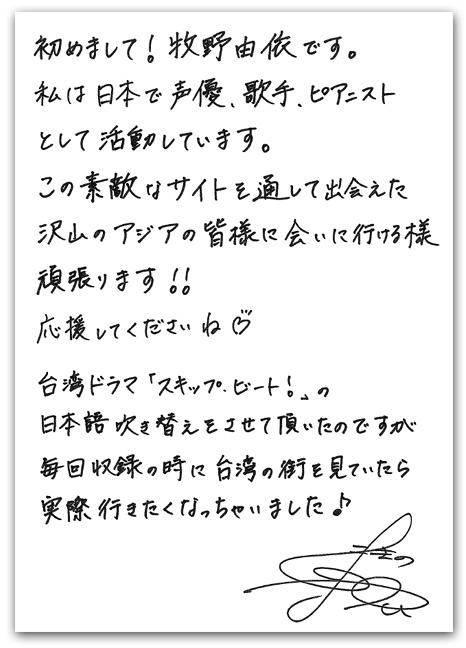 初めまして！牧野由依です。
私は日本で声優、歌手、ピアニスト
として活動しています。
この素敵なサイトを通して出会えた
沢山のアジアの皆様に会いに行ける様
頑張ります！！
応援してくださいね♡
台湾ドラマ「スキップ・ビート！」の
日本語吹き替えをさせて頂いたのですが
毎回収録の時に台湾の街を見ていたら
実際行きたくなっちゃいました♪